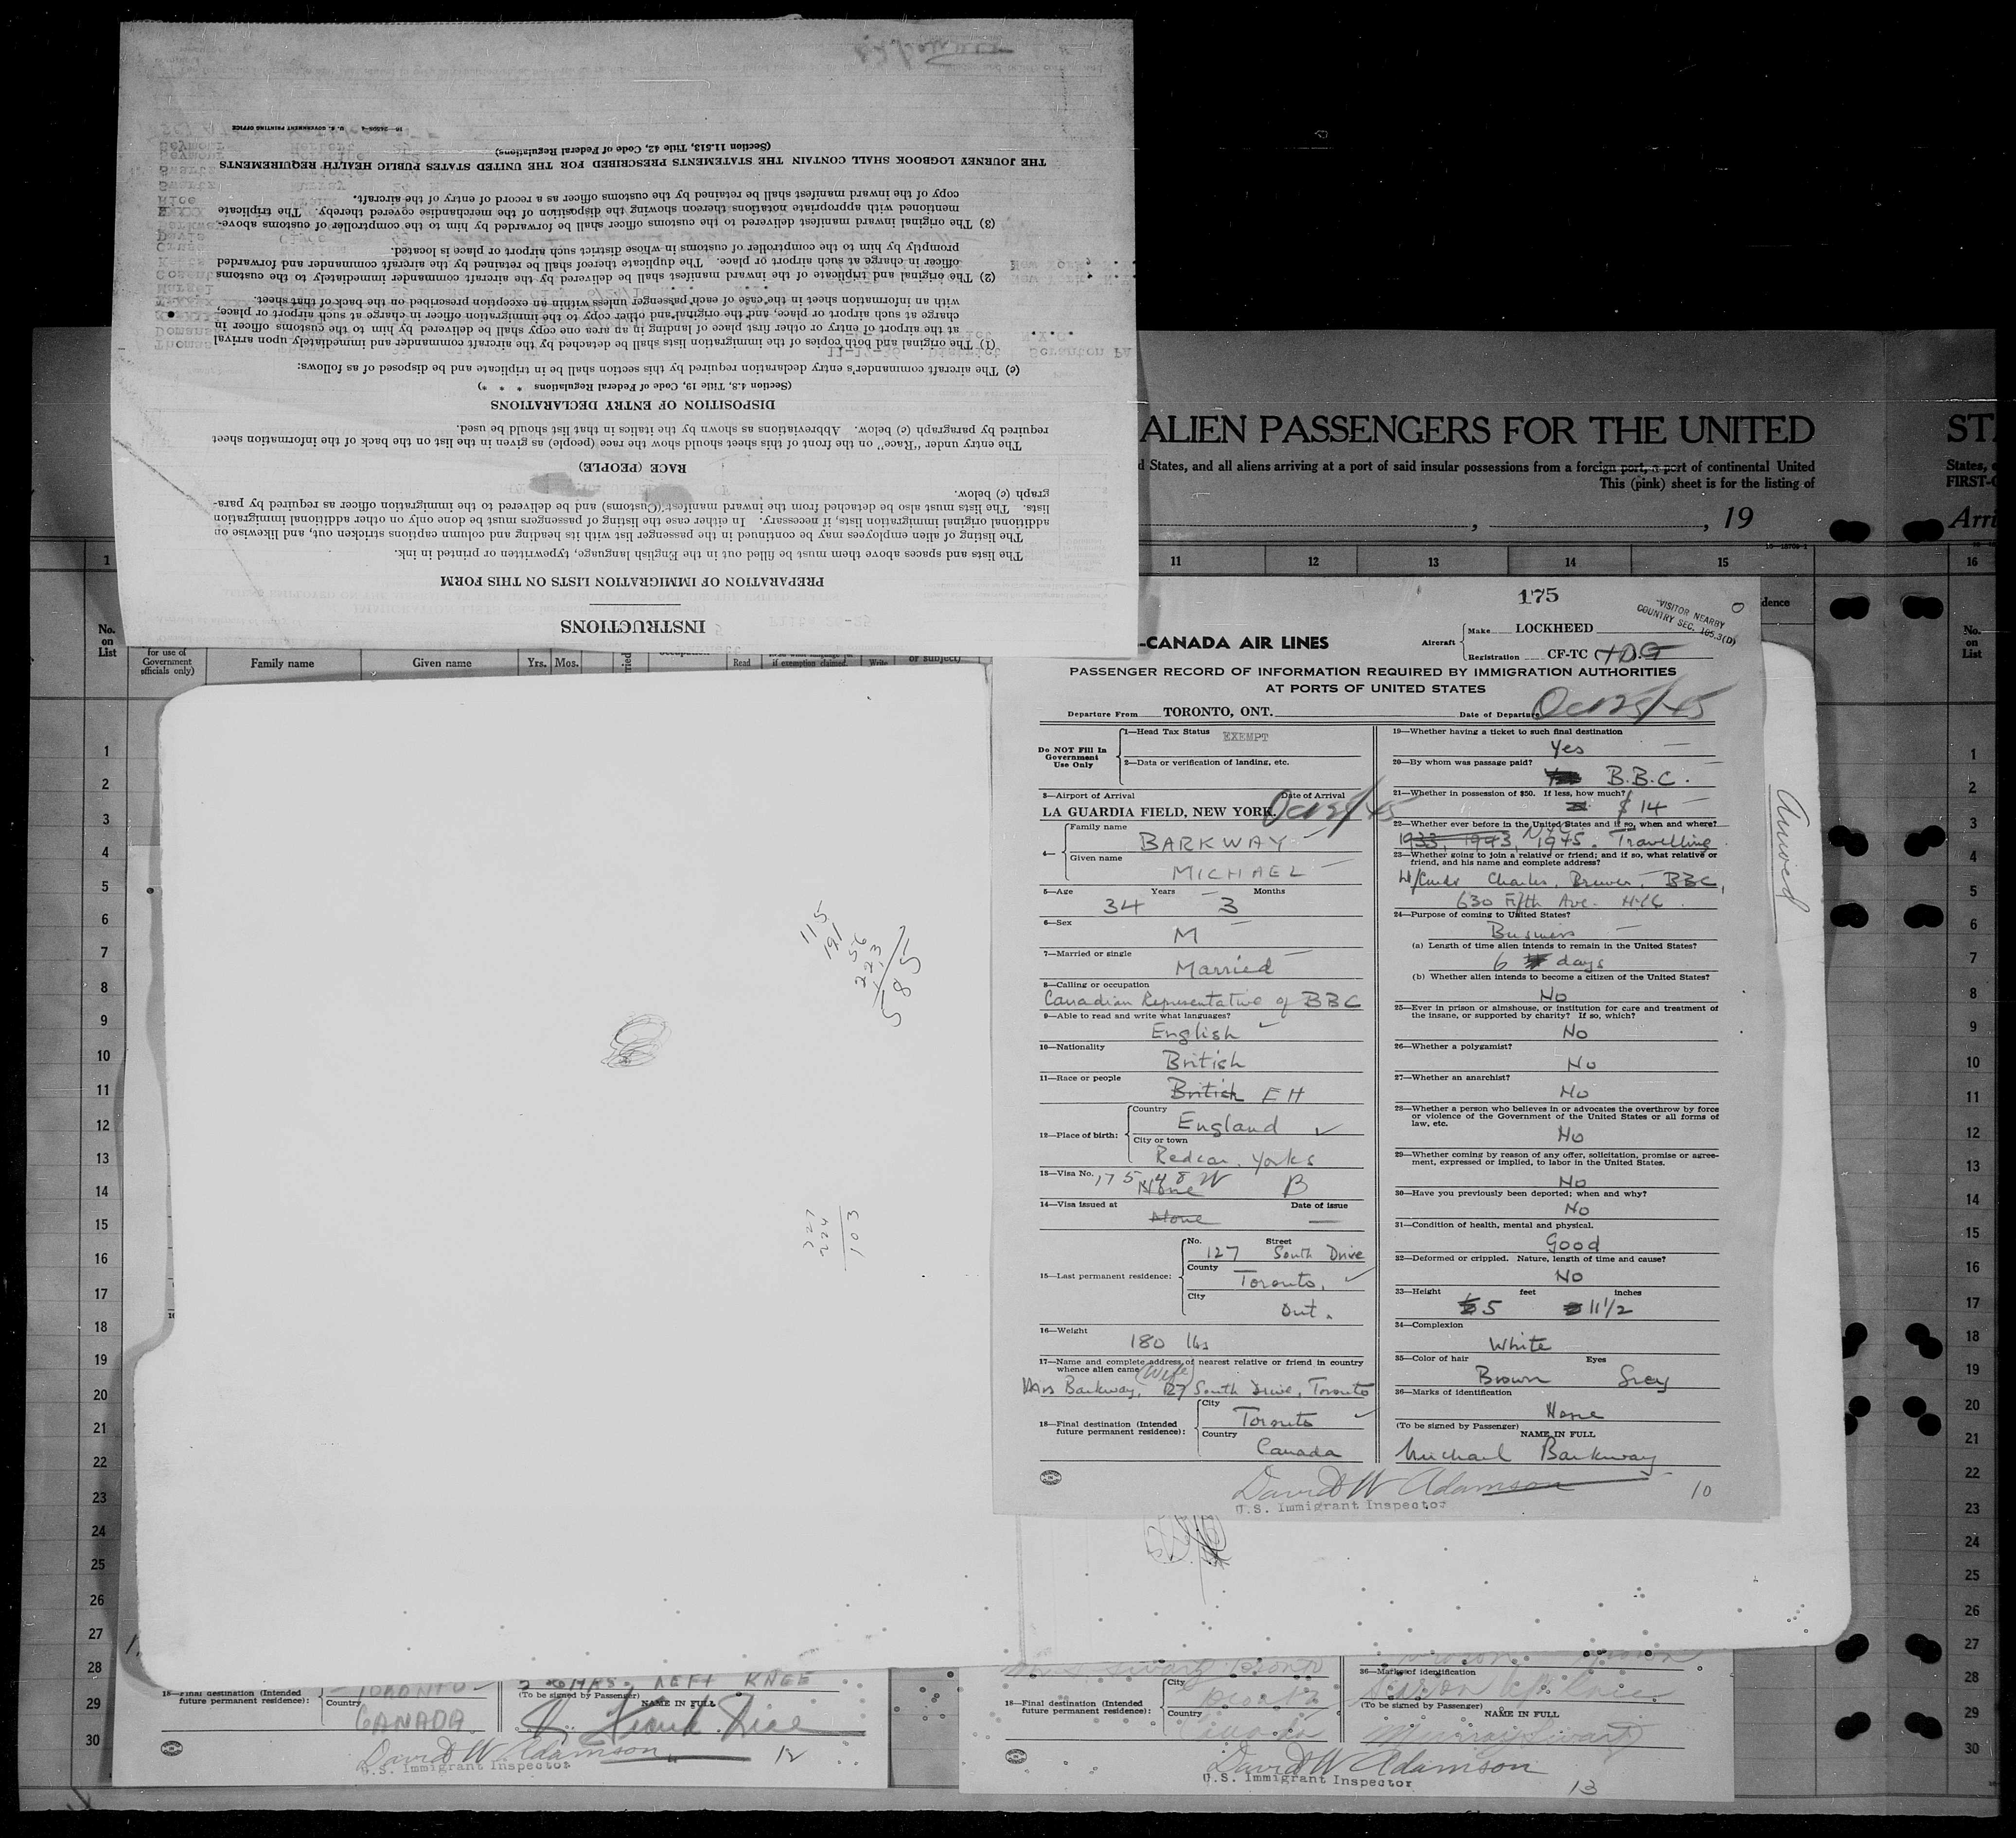 INSTRUCTIONS
PREPARATION OF IMMIGRATION LISTS ON THIS FORM
The lists and spaces above them must be filled out in the English language, typewritten or printed in ink.
The listing of alien employees may be continued in the passenger list with its heading and column captions stricken out, and likewise on
additional original immigration lists, if necessary. In either case the listing of passengers must be done only on other additional immigration
lists. The lists must also be detached from the inward manifest (Customs) and be delivered to the immigration officer as required by para-
graph (c) below.
RACE (PEOPLE)
The entry under "Race" on the front of this sheet should show the race (people) as given in the list on the back of the information sheet
required by paragraph (c) below. Abbreviations as shown by the italics in that list should be used.
DISPOSITION OF ENTRY DECLARATIONS
(Section 4.8, Title 19, Code of Federal Regulations * * *)
(c) The aircraft commander's entry declaration required by this section shall be in triplicate and be disposed of as follows:
(1) The original and both copies of the immigration lists shall be detached by the aircraft commander and immediately upon arrival
at the airport of entry or other first place of landing in an area one copy shall be delivered by him to the customs officer in
charge at such airport or place, and the original and other copy to the immigration officer in charge at such airport or place,
with an information sheet in the case of each passenger unless within an exception prescribed on the back of that sheet.
(2) The original and triplicate of the inward manifest shall be delivered by the aircraft commander immediately to the customs
officer in charge at such airport or place. The duplicate thereof shall be retained by the aircraft commander and forwarded
promptly by him to the comptroller of customs in whose district such airport or place is located.
(3) The original inward manifest delivered to the customs officer shall be forwarded by him to the comptroller of customs above-
mentioned with appropriate notations thereon showing the disposition of the merchandise covered thereby. The triplicate
copy of the inward manifest shall be retained by the customs officer as a record of entry of the aircraft.
THE JOURNEY LOGBOOK SHALL CONTAIN THE STATEMENTS PRESCRIBED FOR THE UNITED STATES PUBLIC HEALTH REQUIREMENTS
(Section 11.513, Title 42, Code of Federal Regulations)
16—24505-4 U. S. GOVERNMENT PRINTING OFFICE
ALIEN PASSENGERS FOR THE UNITED
d States, and all aliens arriving at a port of said insular possessions from a foreign port, a port of continental United
This (pink) sheet is for the listing of
, 19
11 12 13 14 15
16
1
No. on List
for use of Government officials only)
Family name Given name Yrs. Mos.
Read
if exemption claimed.
Write
or subject)
1
2
3
4
5
6
7
8
9
10
11
12
13
14
15
16
17
18
19
20
21
22
23
24
25
26
27
28
29
30
115
191
56
223
585
327
224
103
175
VISITOR NEARBY
COUNTRY SEC. 165.3(D)
-CANADA AIR LINES
Aircraft
Make LOCKHEED
Registration CF-TC
PASSENGER RECORD OF INFORMATION REQUIRED BY IMMIGRATION AUTHORITIES
AT PORTS OF UNITED STATES
Departure From TORONTO, ONT.
Date of Departure Oct 25/45
Do NOT Fill In Government Use Only
1—Head Tax Status EXEMPT
2—Data or verification of landing, etc.
3—Airport of Arrival Date of Arrival
LA GUARDIA FIELD, NEW YORK. Oct 25/45
4— Family name
BARKWAY
Given name
MICHAEL
5—Age Years Months
34 3
6—Sex
M
7—Married or single
Married
8—Calling or occupation
Canadian Representative of BBC
9—Able to read and write what languages?
English
10—Nationality
British
11—Race or people
British EH
12—Place of birth: Country
England
City or town
Redcar, Yorks
13—Visa No.
None B
14—Visa issued at Date of issue
None —
15—Last permanent residence: No. Street
127 South Drive
County
Toronto,
City
Ont.
16—Weight
180 lbs
17—Name and complete address of nearest relative or friend in country
whence alien came (Wife)
Mrs Barkway, 127 South Drive, Toronto
18—Final destination (Intended future permanent residence): City
Toronto
Country
Canada
19—Whether having a ticket to such final destination
Yes
20—By whom was passage paid?
B.B.C.
21—Whether in possession of $50. If less, how much?
$ 14
22—Whether ever before in the United States and if so, when and where?
1933, 1943, 1945. Travelling
23—Whether going to join a relative or friend; and if so, what relative or
friend, and his name and complete address?
Charles Brewer, BBC,
630 Fifth Ave. NYC.
24—Purpose of coming to United States?
Business
(a) Length of time alien intends to remain in the United States?
6 days
(b) Whether alien intends to become a citizen of the United States?
No
25—Ever in prison or almshouse, or institution for care and treatment of
the insane, or supported by charity? If so, which?
No
26—Whether a polygamist?
No
27—Whether an anarchist?
No
28—Whether a person who believes in or advocates the overthrow by force
or violence of the Government of the United States or all forms of
law, etc.
No
29—Whether coming by reason of any offer, solicitation, promise or agree-
ment, expressed or implied, to labor in the United States.
No
30—Have you previously been deported; when and why?
No
31—Condition of health, mental and physical.
Good
32—Deformed or crippled. Nature, length of time and cause?
No
33—Height feet inches
5 11 1/2
34—Complexion
White
35—Color of hair Eyes
Brown Grey
36—Marks of identification
None
(To be signed by Passenger)
NAME IN FULL
Michael Barkway
David W Adamson
U.S. Immigrant Inspector
10
18—Final destination (Intended future permanent residence):
TORONTO
Country
CANADA
LEFT KNEE
(To be signed by Passenger)
NAME IN FULL
David W Adamson
U.S. Immigrant Inspector
12
18—Final destination (Intended future permanent residence):
City
Country
36—Marks of identification
(To be signed by Passenger)
NAME IN FULL
David W Adamson
U.S. Immigrant Inspector
13
STA
States,
FIRST-C
Arri
No. on List
1
2
3
4
5
6
7
8
9
10
11
12
13
14
15
16
17
18
19
20
21
22
23
24
25
26
27
28
29
30